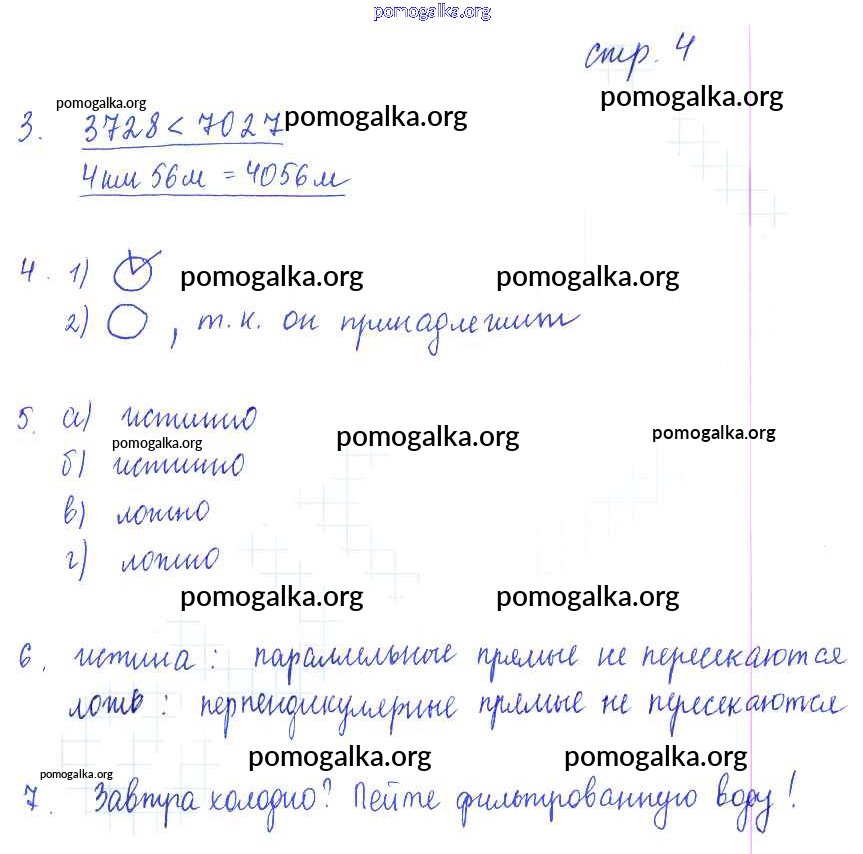 pomogalka.org
стр. 4
pomogalka.org
pomogalka.org
3. 3728 < 7027 pomogalka.org
4 км 56 м = 4056 м
4. 1) pomogalka.org pomogalka.org
2) , т.к. он принадлежит
5. а) истинно
pomogalka.org pomogalka.org pomogalka.org
б) истинно
в) ложно
г) ложно
pomogalka.org pomogalka.org
6. истина: параллельные прямые не пересекаются
ложь: перпендикулярные прямые не пересекаются
pomogalka.org pomogalka.org
pomogalka.org
7. Завтра холодно? Пейте фильтрованную воду!